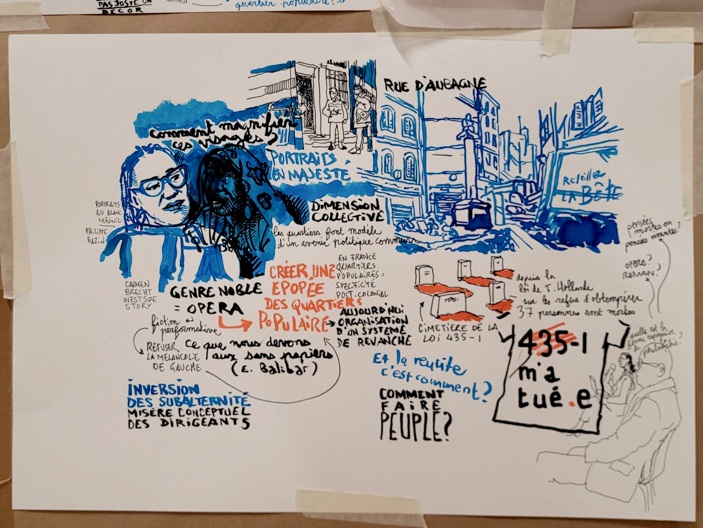 PAS JUSTE UN
DECOR
quartier populaire?
RUE D'AUBAGNE
comment magnifier
ces visages?
PORTRAITS
EN MAJESTÉ
Réveiller
LA BÊTE
PORTRAITS
DU BLANC
MESNIL
PHILIPPE
BAZIN
DIMENSION
COLLECTIVE
les quartiers font modèle
d'un avenir politique commun
CARMEN
BRECHT
WESTSIDE
STORY
GENRE NOBLE
= OPÉRA
CRÉER UNE
ÉPOPÉE
DES QUARTIERS
POPULAIRE
EN FRANCE
QUARTIERS
POPULAIRES:
SPÉCIFICITÉ
POST-COLONIAL
AUJOURD'HUI
ORGANISATION
D'UN SYSTÈME
DE REVANCHE
fiction
performative
REFUSER
LA MÉLANCOLIE
DE GAUCHE
ce que nous devons
aux sans papiers
(E. Balibar)
INVERSION
DES SUBALTERNITÉ
MISÈRE CONCEPTUEL
DES DIRIGEANTS
CIMETIÈRE DE LA
LOI 435-1
depuis la
loi de F. Hollande
sur le refus d'obtempérer
37 personnes sont mortes
435-1
m'a
tué.e
Et la réussite
c'est comment?
COMMENT
FAIRE
PEUPLE?